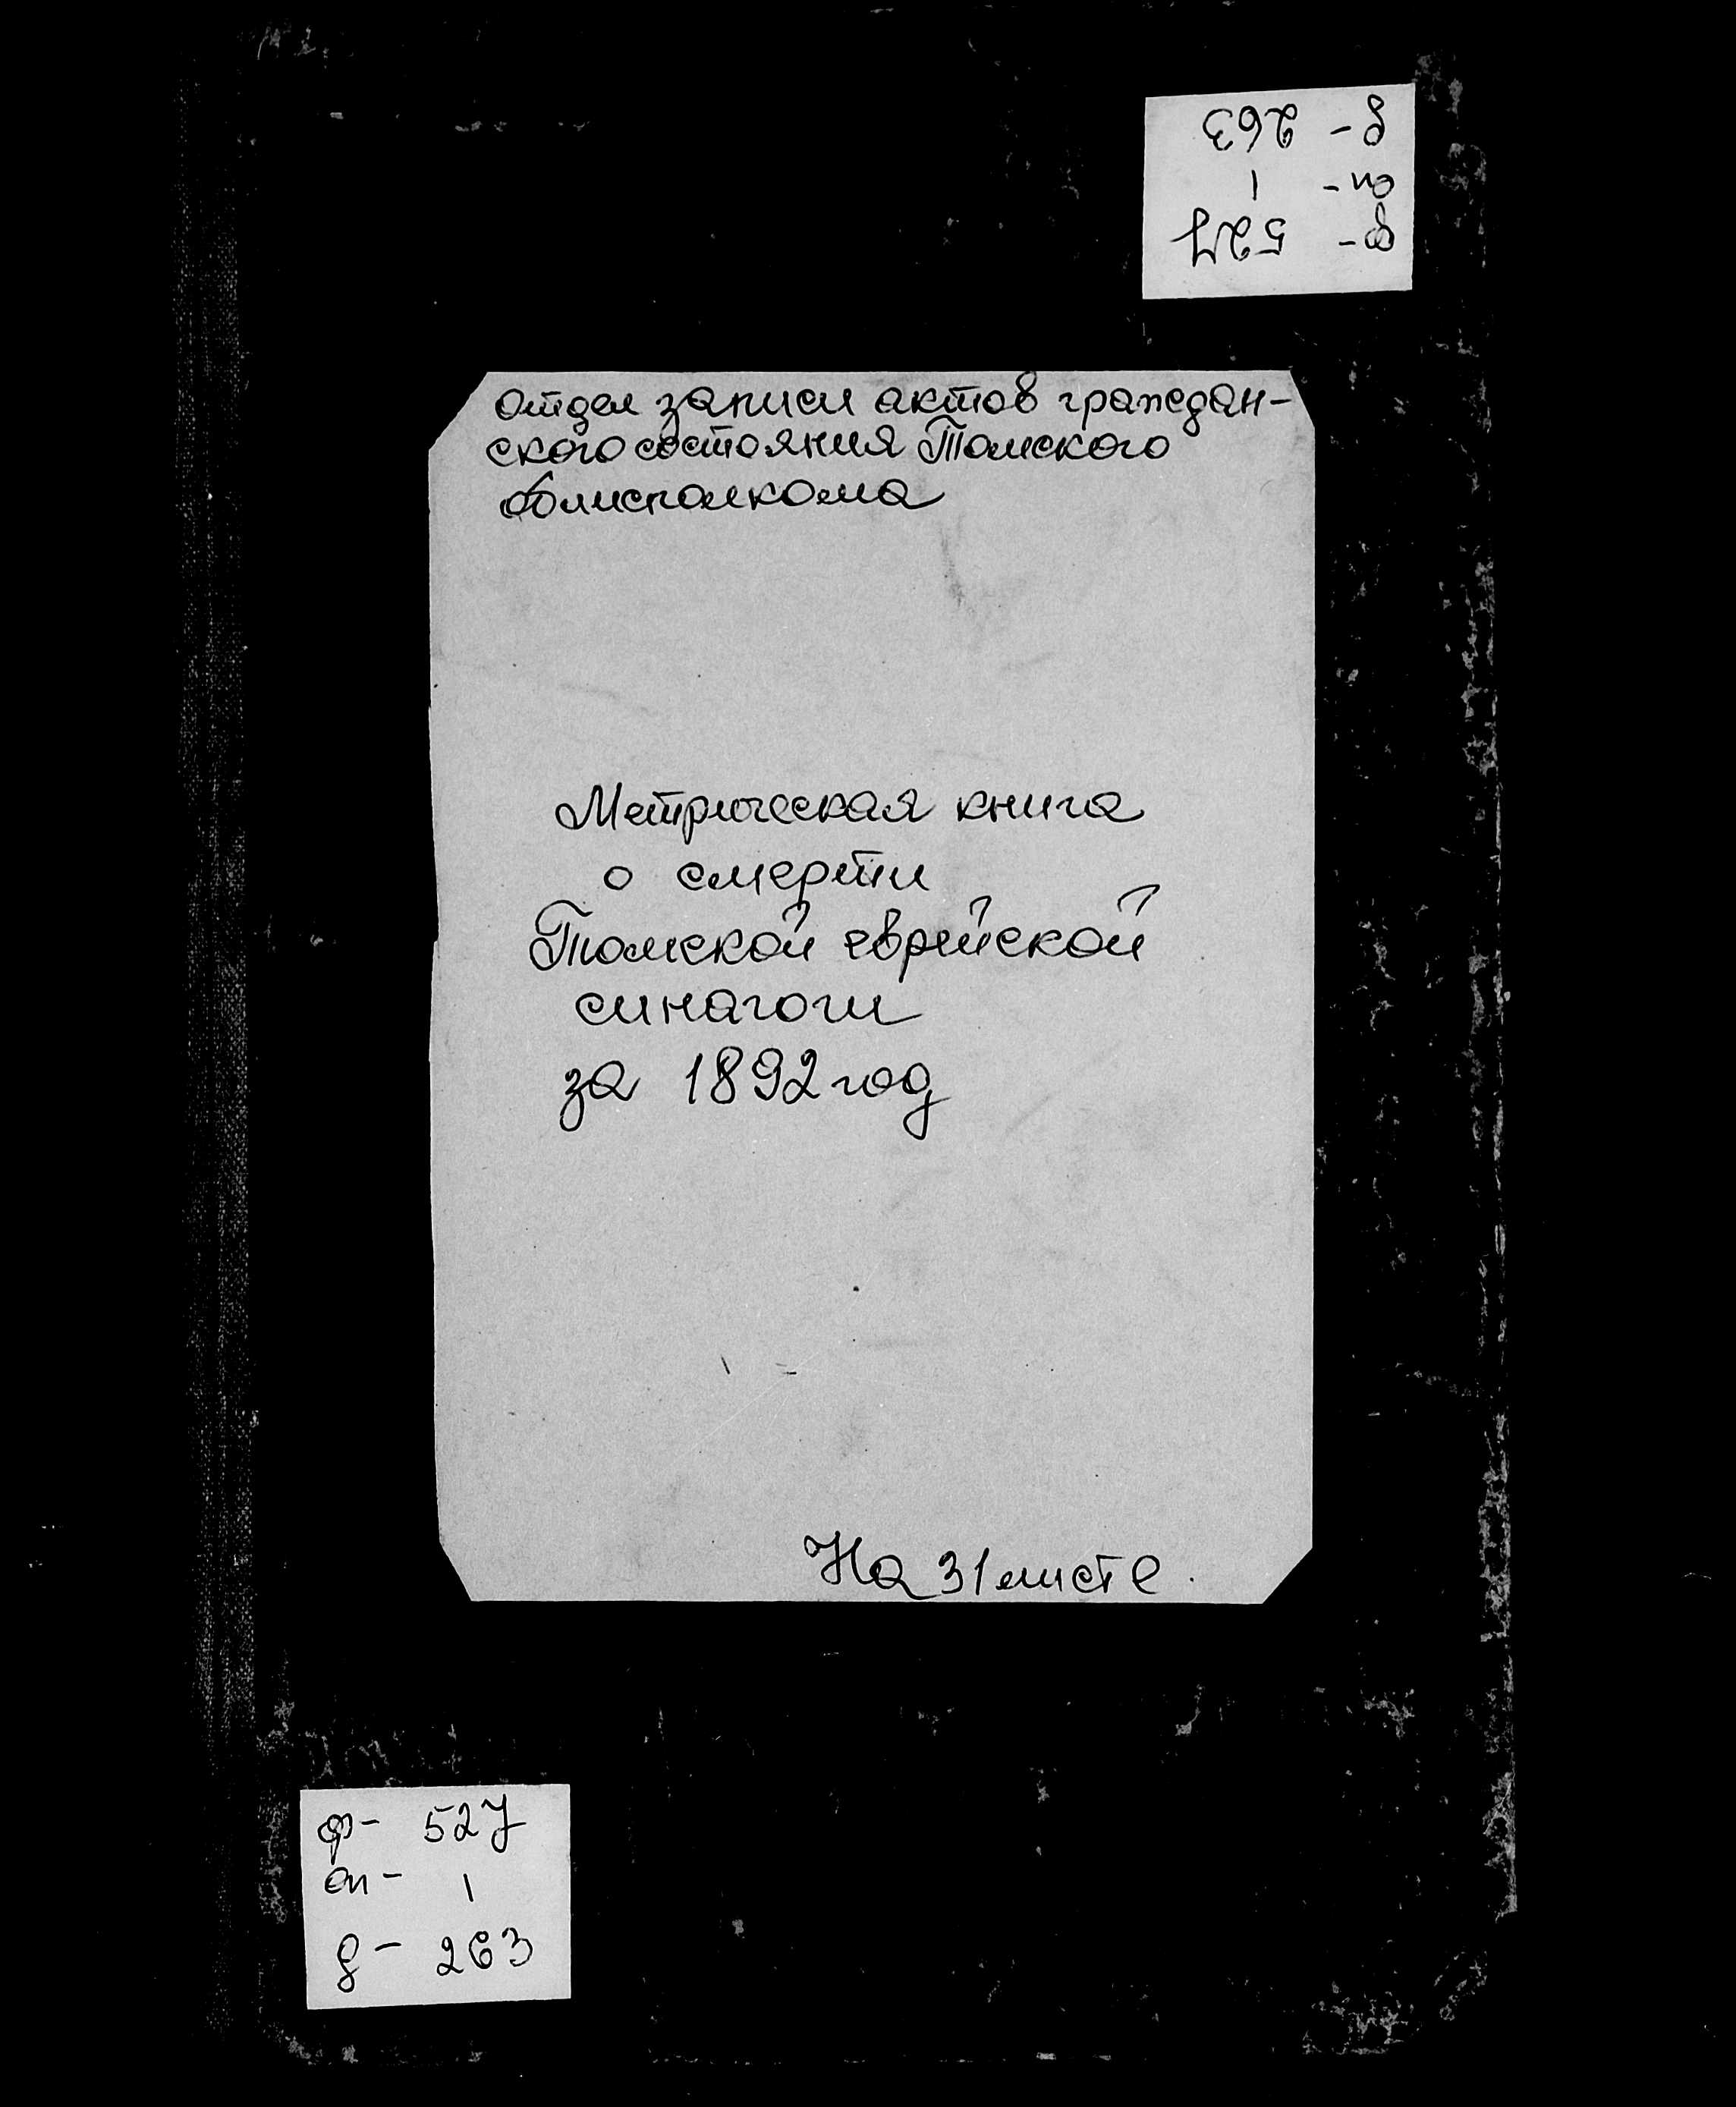 д- 263
оп- 1
ф- 527
Отдел записи актов граждан-
ского состояния Томского
облисполкома
Метрическая книга
о смерти
Томской еврейской
синагоги
за 1892 год
На 31 листе.
ф- 527
оп- 1
д- 263